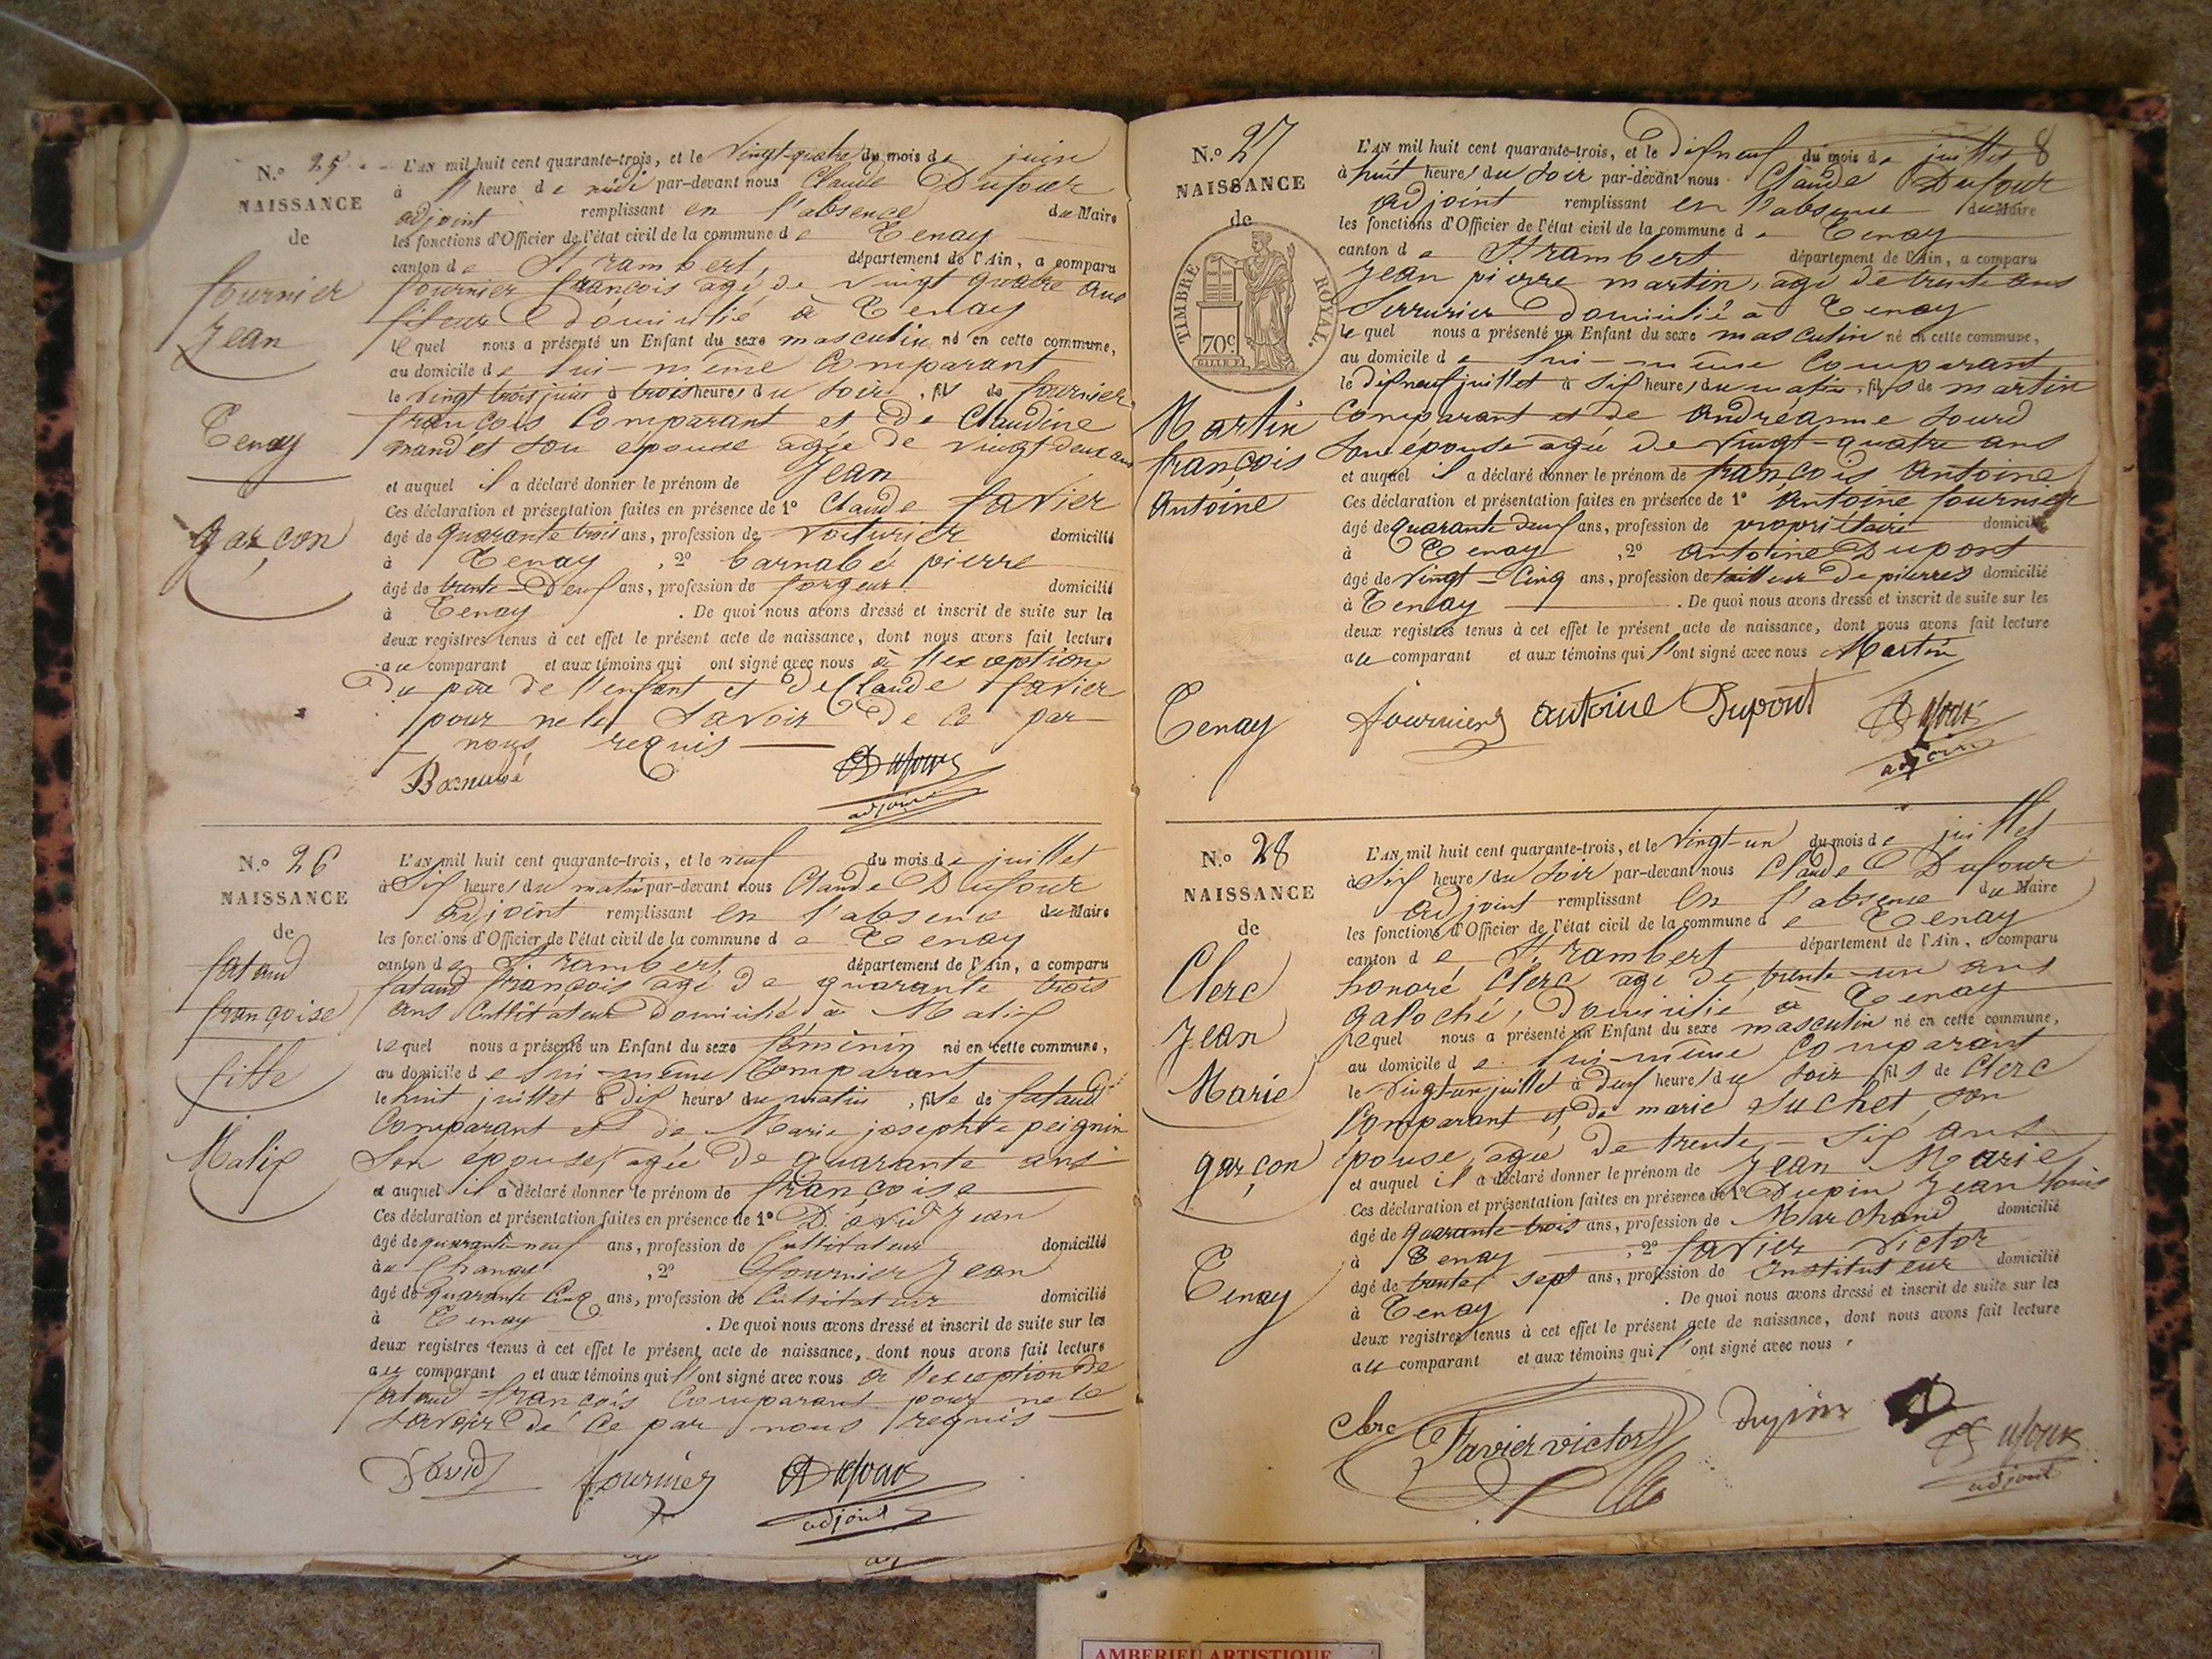 N.o 25
NAISSANCE
de
fournier
Jean
Tenay
garçon
L'AN mil huit cent quarante-trois, et le Vingt-quatre du mois de juin
à heure de midi par-devant nous Claude Dufour
adjoint remplissant en l'absence du Maire
les fonctions d'Officier de l'état civil de la commune de Tenay
canton de St rambert, département de l'Ain, a comparu
fournier françois agé de vingt quatre ans
fileur domicilié à Tenay
lequel nous a présenté un Enfant du sexe masculin né en cette commune,
au domicile de lui-même Comparant
le vingt trois juin à trois heures du soir, fils de fournier
françois Comparant et de Claudine
mandet son epouse agée de vingt deux ans
et auquel il a déclaré donner le prénom de Jean
Ces déclaration et présentation faites en présence de 1° Claude favier
âgé de quarante trois ans, profession de voiturier domicilié
à Tenay, 2° barnabé pierre
âgé de trente-Deux ans, profession de forgeur domicilié
à Tenay. De quoi nous avons dressé et inscrit de suite sur les
deux registres tenus à cet effet le présent acte de naissance, dont nous avons fait lecture
au comparant et aux témoins qui ont signé avec nous à l'exception
Du père de l'enfant et de Claude favier
pour ne le savoir De ce par
nous requis
Barnabé Dufour
adjoint
N.o 26
NAISSANCE
de
fataud
françoise
fille
Malix
L'AN mil huit cent quarante-trois, et le neuf du mois de juillet
à Six heures du matin par-devant nous Claude Dufour
adjoint remplissant en l'absence du Maire
les fonctions d'Officier de l'état civil de la commune de Tenay
canton de St rambert, département de l'Ain, a comparu
fataud françois agé de quarante trois
ans Cultivateur domicilié à Malix
lequel nous a présenté un Enfant du sexe féminin né en cette commune,
au domicile de lui-même Comparant
le huit juillet à Dix heures du matin, fille de fataud
Comparant et de Marie josephte peignin
Son epouse, agée De quarante ans
et auquel il a déclaré donner le prénom de françoise
Ces déclaration et présentation faites en présence de 1° David Jean
âgé de quarante-neuf ans, profession de Cultivateur domicilié
au Chanay, 2° fournier Jean
âgé de quarante Cinq ans, profession de Cultivateur domicilié
à Tenay. De quoi nous avons dressé et inscrit de suite sur les
deux registres tenus à cet effet le présent acte de naissance, dont nous avons fait lecture
au comparant et aux témoins qui l'ont signé avec nous à l'exception de
fataud françois Comparant pour ne le
savoir de ce par nous requis
David fournier Dufour
adjoint
8
N.o 27
NAISSANCE
de
TIMBRE ROYAL.
70c
Martin
françois
Antoine
Tenay
L'AN mil huit cent quarante-trois, et le dixneuf du mois de juillet
à huit heures du soir par-devant nous Claude Dufour
adjoint remplissant en l'absence du Maire
les fonctions d'Officier de l'état civil de la commune de Tenay
canton de St rambert département de l'Ain, a comparu
Jean pierre martin, agé de trente ans
Serrurier domicilié à Tenay
lequel nous a présenté un Enfant du sexe masculin né en cette commune,
au domicile de lui-même Comparant
le dixneuf juillet à Six heures du matin, fils de martin
Comparant et de Andréanne sourd
son épouse agée de vingt-quatre ans
et auquel il a déclaré donner le prénom de françois Antoine
Ces déclaration et présentation faites en présence de 1° Antoine fournier
âgé de quarante deux ans, profession de propriétaire domicilié
à Tenay, 2° Antoine Dupont
âgé de Vingt-Cinq ans, profession de tailleur de pierres domicilié
à Tenay. De quoi nous avons dressé et inscrit de suite sur les
deux registres tenus à cet effet le présent acte de naissance, dont nous avons fait lecture
au comparant et aux témoins qui l'ont signé avec nous Martin
fournier antoine Dupont Dufour
adjoint
N.o 28
NAISSANCE
de
Clerc
Jean
Marie
garçon
Tenay
L'AN mil huit cent quarante-trois, et le Vingt-un du mois de juillet
à Six heures du Soir par-devant nous Claude Dufour
adjoint remplissant en l'absence du Maire
les fonctions d'Officier de l'état civil de la commune de Tenay
canton de St rambert département de l'Ain, a comparu
honoré Clerc agé de trente-un ans
galoché, domicilié à Tenay
lequel nous a présenté un Enfant du sexe masculin né en cette commune,
au domicile de lui-même Comparant
le vingt un juillet à Deux heures du soir fils de Clerc
Comparant et de marie Suchet, son
épouse, agée de trente-six ans
et auquel il a déclaré donner le prénom de Jean Marie
Ces déclaration et présentation faites en présence de 1° Dupin Jean Louis
âgé de quarante trois ans, profession de Marchand domicilié
à Tenay, 2° favier Victor
âgé de trente sept ans, profession de Instituteur domicilié
à Tenay. De quoi nous avons dressé et inscrit de suite sur les
deux registres tenus à cet effet le présent acte de naissance, dont nous avons fait lecture
au comparant et aux témoins qui l'ont signé avec nous.
Clerc Favier victor dupin Dufour
adjoint
AMBERIEU ARTISTIQUE